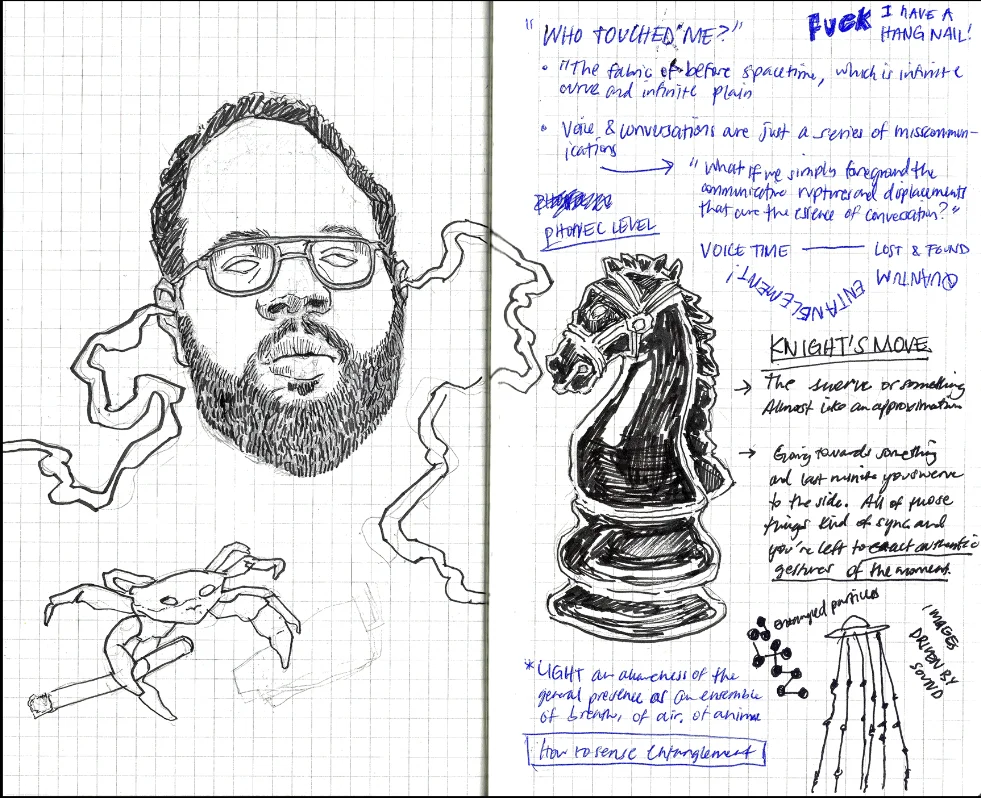 "WHO TOUCHED ME?"
FUCK I HAVE A
HANG NAIL!
• "The fabric of before spacetime, which is infinite
curve and infinite plain
• Voice & conversations are just a series of miscommun-
ications
→ "What if we simply foreground the
communicative ruptures and displacements
that are the essence of conversation?"
PHONEC LEVEL
VOICE TIME —— LOST & FOUND
QUANTUM ENTANGLEMENT!
KNIGHT'S MOVE
→ The swerve or something
Allmost into an approximation
→ Going towards something
and last minute you swerve
to the side. All of those
things kind of sync and
you're left to enact authentic
gestures of the moment.
entangled particles
IMAGES
DRIVEN BY
SOUND
*LIGHT an awareness of the
general presence as an ensemble
of breath, of air, of anima
How to sense Entanglement